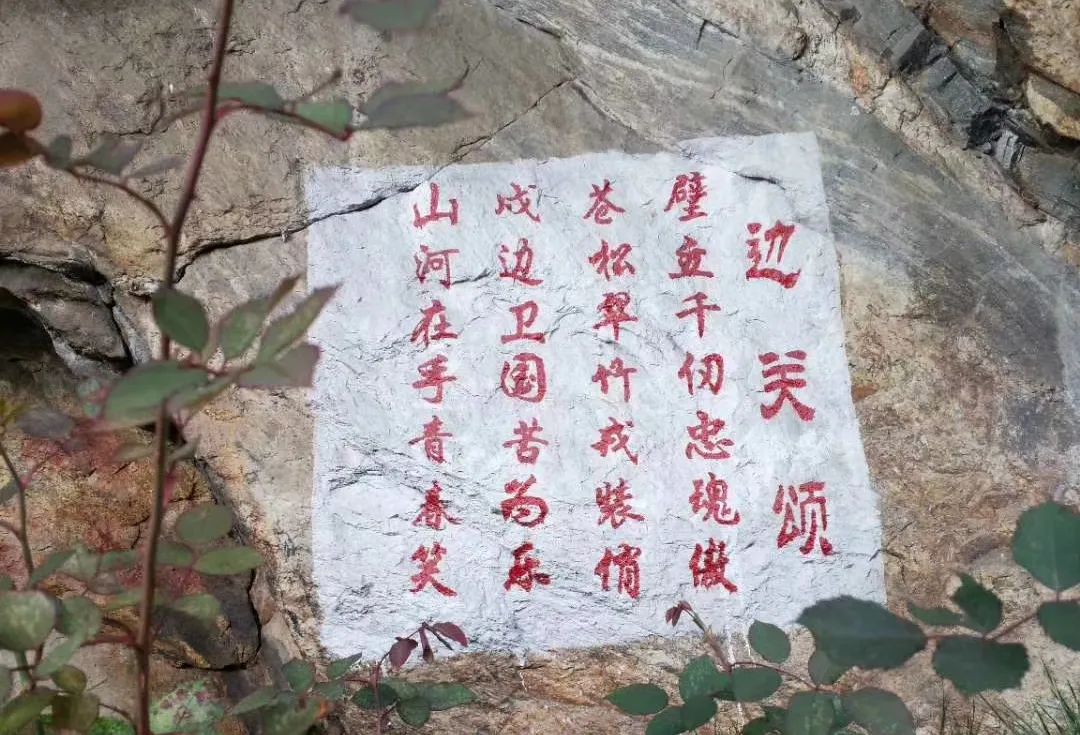 边关颂
壁立千仞忠魂傲
苍松翠竹戎装俏
戍边卫国苦为乐
山河在手青春笑